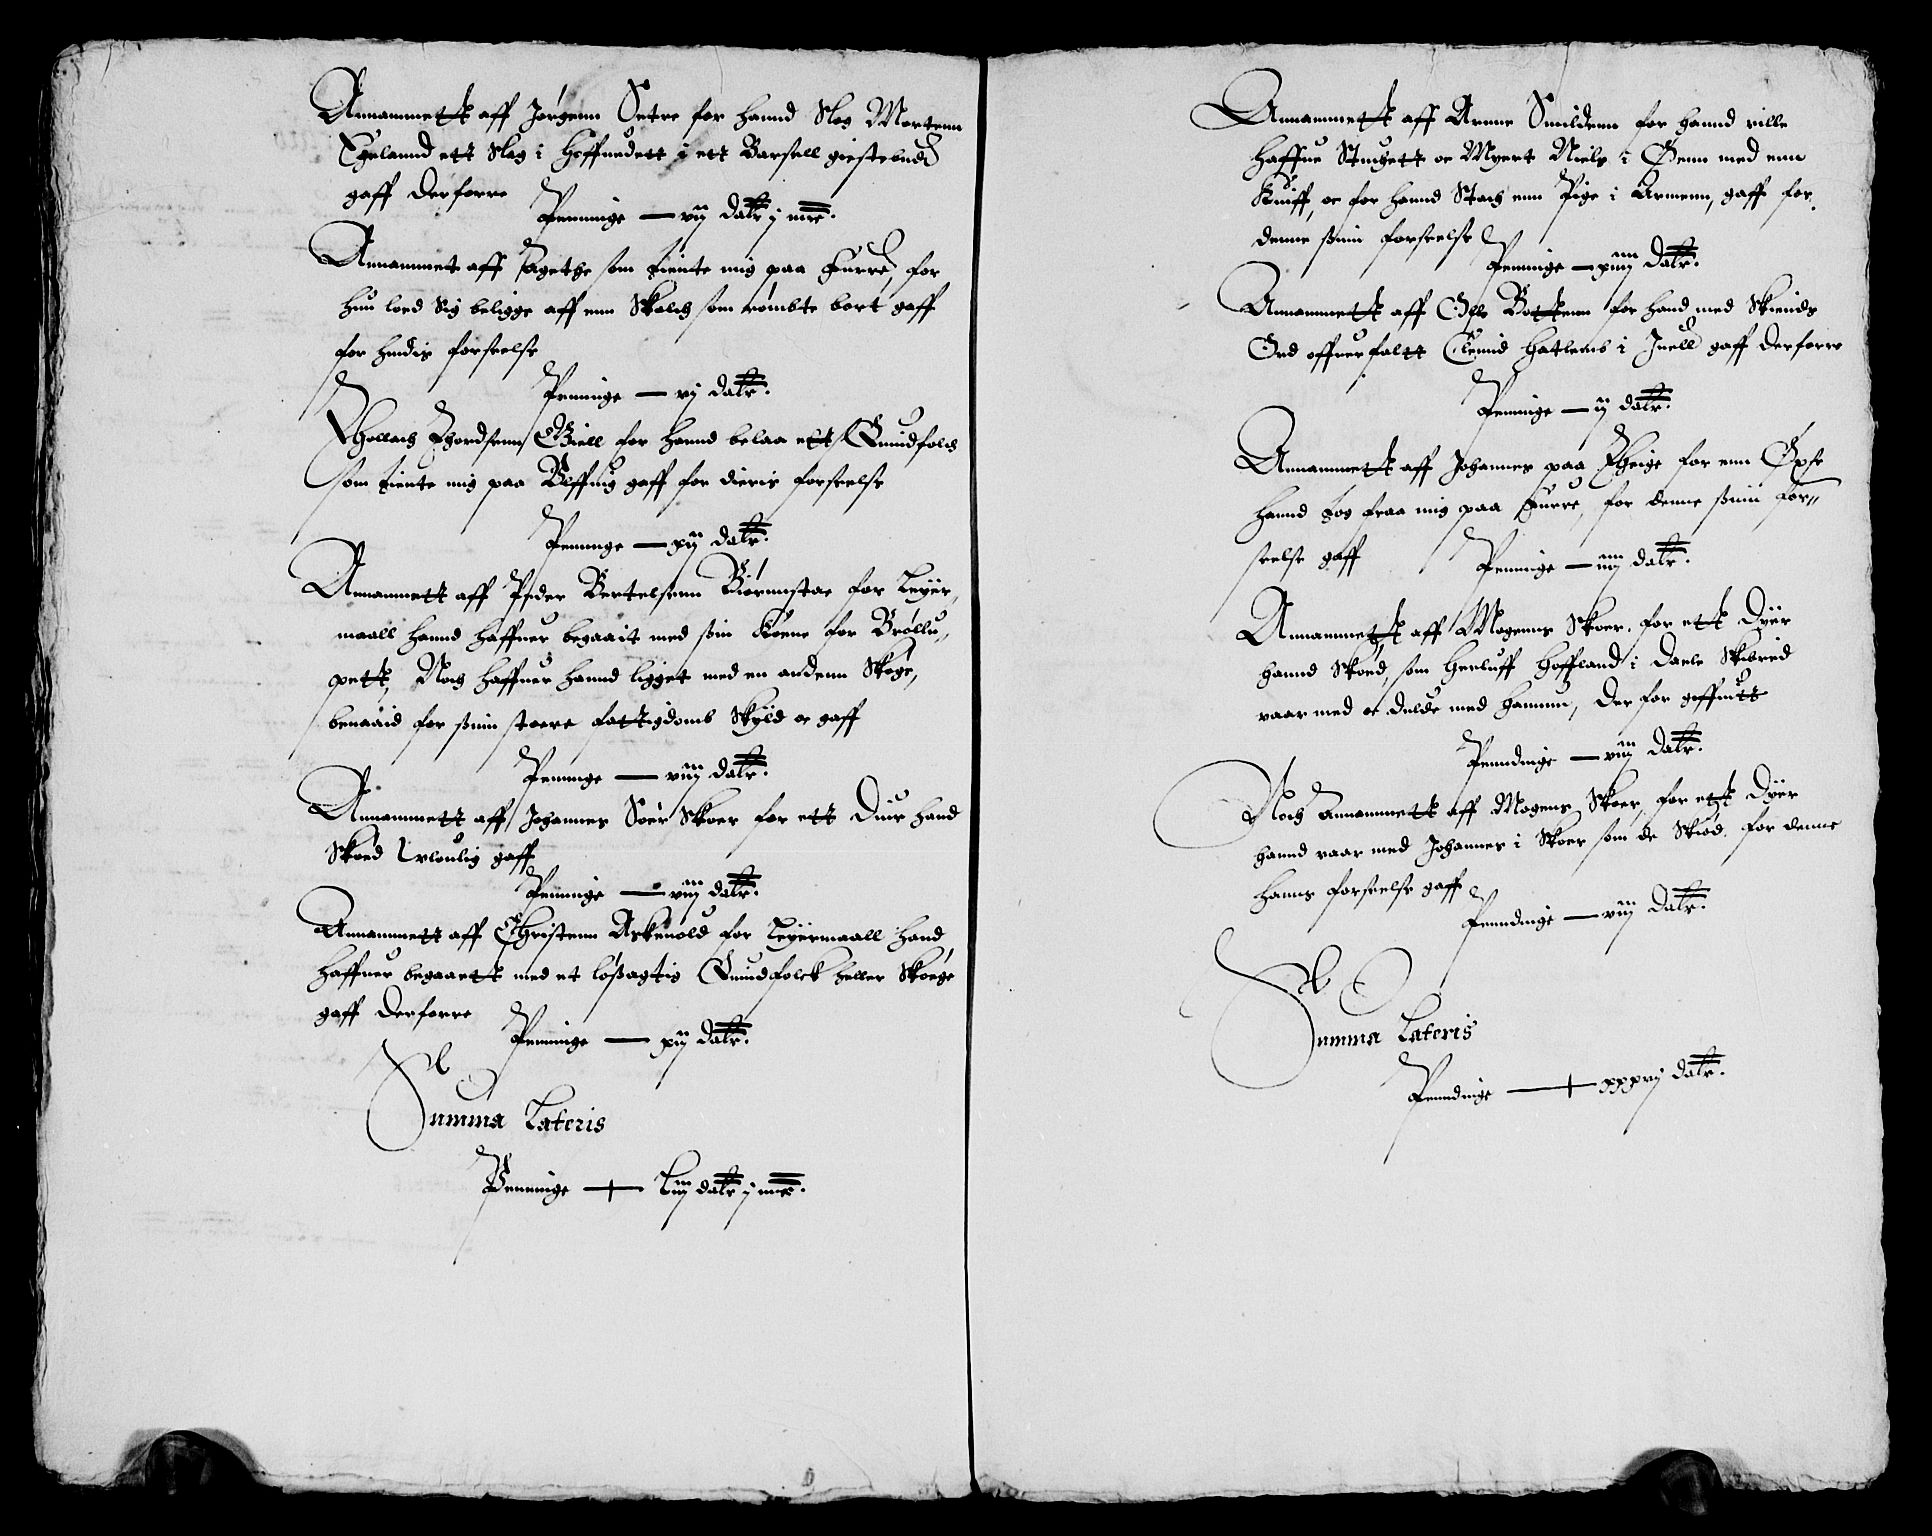 Annammett aff Jørgenn Setre for hannd Slog Mortenn
Egelannd ett Slag i hoffuedett i ett Barsell giestebudd
gaff derforre
Penninge — vij dalr j mrc.
Annammet aff Agethe som tiente mig paa Furre, for
hun loed Sig beligge aff enn Skalch som rømbte bort gaff
for hindis forseelse
Penninge — vj dalr.
Thollach Thordsenn Giell for hannd belaa ett Quindfolch
som tiente mig paa gaff for dieris forseelse
Penninge — xij dalr.
Annammett aff Peder Bertelsenn Biørnnstae for Leyer,
maall hannd haffuer begaait med ssin Kone for Brøllu,,
pett, Noch haffuer hannd ligget med en andenn Skøge,
benaaid for ssinn stoere fattigdombs Skyld oc gaff
Penninge — viij dalr.
Annammett aff Johannes Søer Skoer for ett Diur hand
Skoed Wloulig gaff
Penninge — viij dalr.
Annammett aff Christenn Askeuold for Leyermaall hand
haffuer begaaett med et løssagtig Quindfolck heller Skøege
gaff derforre
Penninge — xij dalr.
Summa Lateris
Penninge — Liij dalr j mrc.
Annammett aff Arnne Smildenn for hannd ville
haffue Stuchett oc Myert Niels i Øenn med enn
Kniff, oc for hannd Stach enn Pige i Armenn, gaff for
denne ssinn forseelse
Penninge — xiiij dalr.
Annammett aff Offe Bottenn for hand med Skiends
Ord offuerfaltt Clemid Hatlembs i Juell gaff derforre
Penninge — ij dalr.
Annammett aff Johannes paa Theige for enn Øxse
hannd tog fraa mig paa Furre, for denne ssinn for,,
seelse gaff
Penninge — iiij dalr.
Annammett aff Mogenns Skoer, for ett Dyer
hannd Skoed, som Herluff Hoffland i Daele Skibred
vaar med oc dulde med hannum, der for giffuett
Penndinge — viij dalr.
Noch annammett aff Mogens Skoer, for ett Dyer
hannd vaar med Johannes i Skoer som de Skiød. for denne
hanns forseelse gaff
Penndinge — viij dalr.
Summa Lateris
Penndinge — xxxvj dalr.